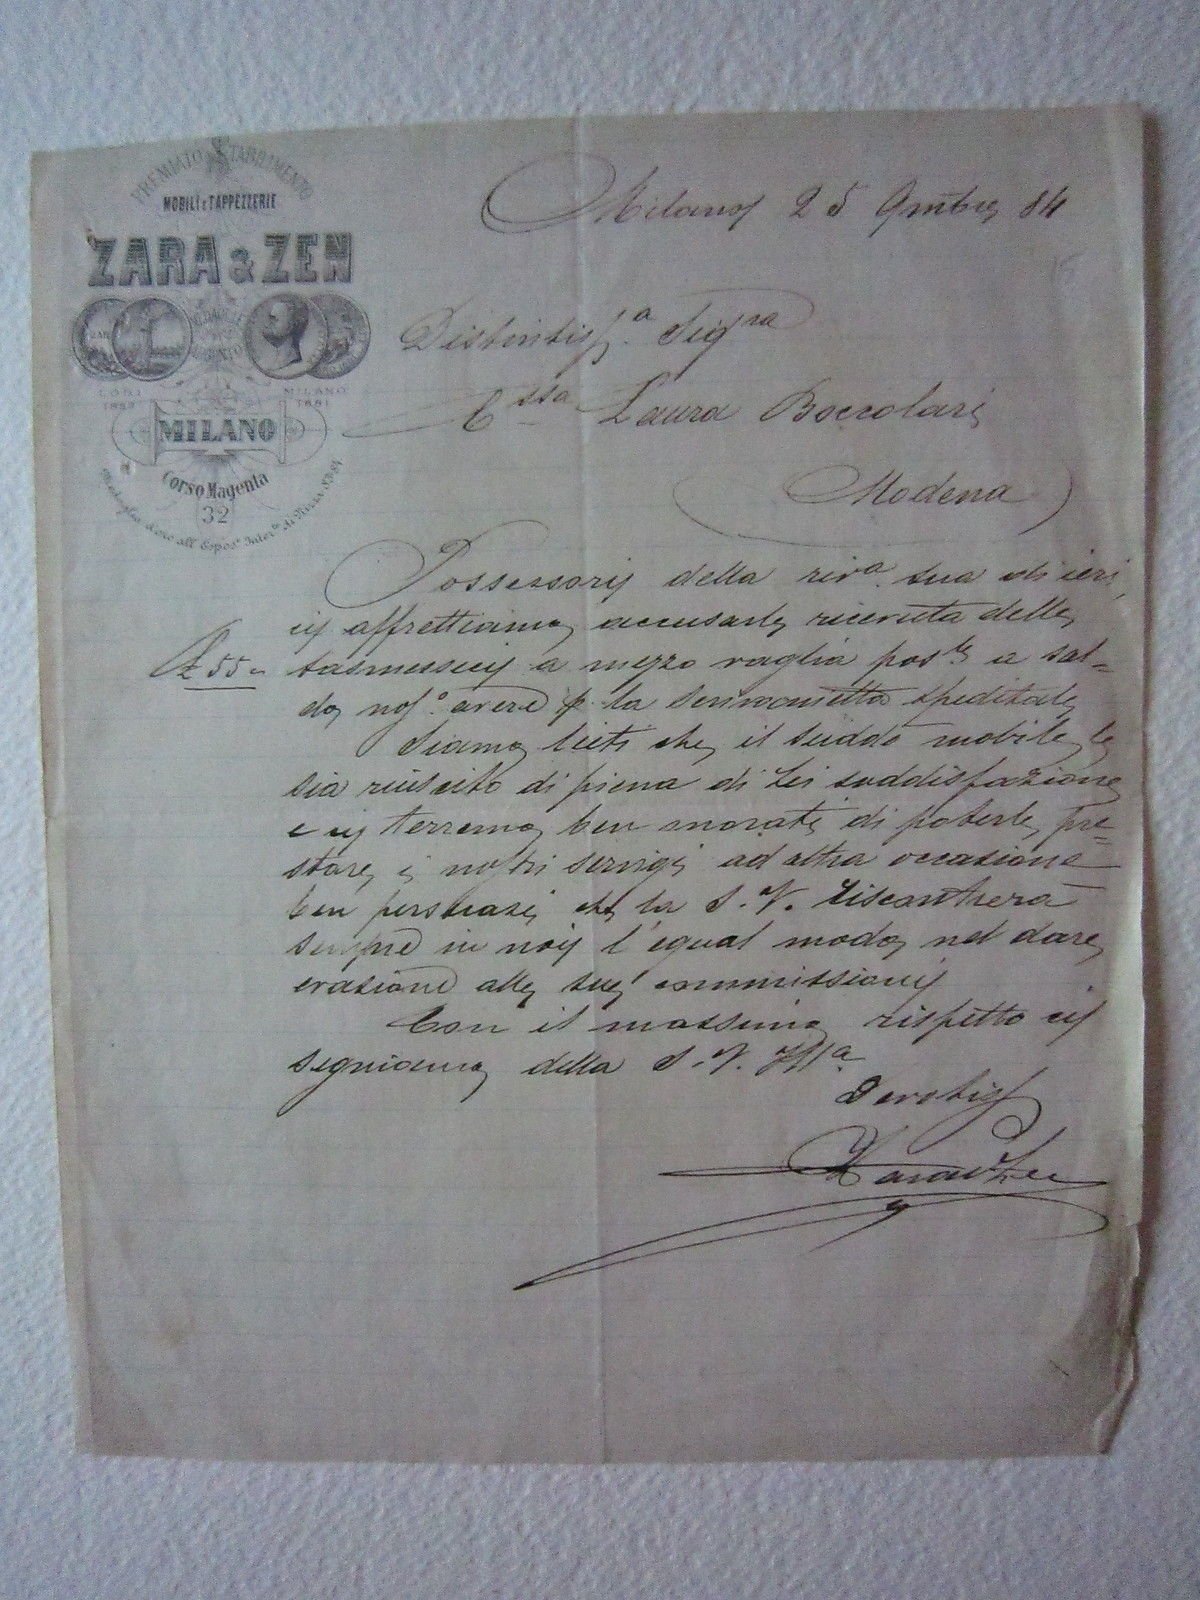 PREMIATO STABILIMENTO
MOBILI e TAPPEZZERIE
ZARA & ZEN
LODI MILANO
1881
MILANO
Corso Magenta
32
Medaglia d'oro all'Espos.e Inter.le di Nizza 83-84
Milano 25 9mbre 84
Distintiss.a Sigra
Cssa Laura Boccolari
Modena
Possessori della riva. sua di ieri,
ci affrettiamo accusarle ricevuta delle
£ 55 -
tasmesseci a mezzo vaglia posle a sal=
do ns.o avere p. la speditale
Siamo lieti che il suddo mobile le
sia riuscito di piena di Lei soddisfazione
e ci terremo ben onorati di poterle pre=
stare i nostri servigi ad altra occasione
ben persuasi che la S. V. riscontrerà
sempre in noi l'egual modo nel dare
evasione alle sue commissioni
Con il massimo rispetto ci
segniamo della S. V. Illa
Devotiss
Zara & Zen